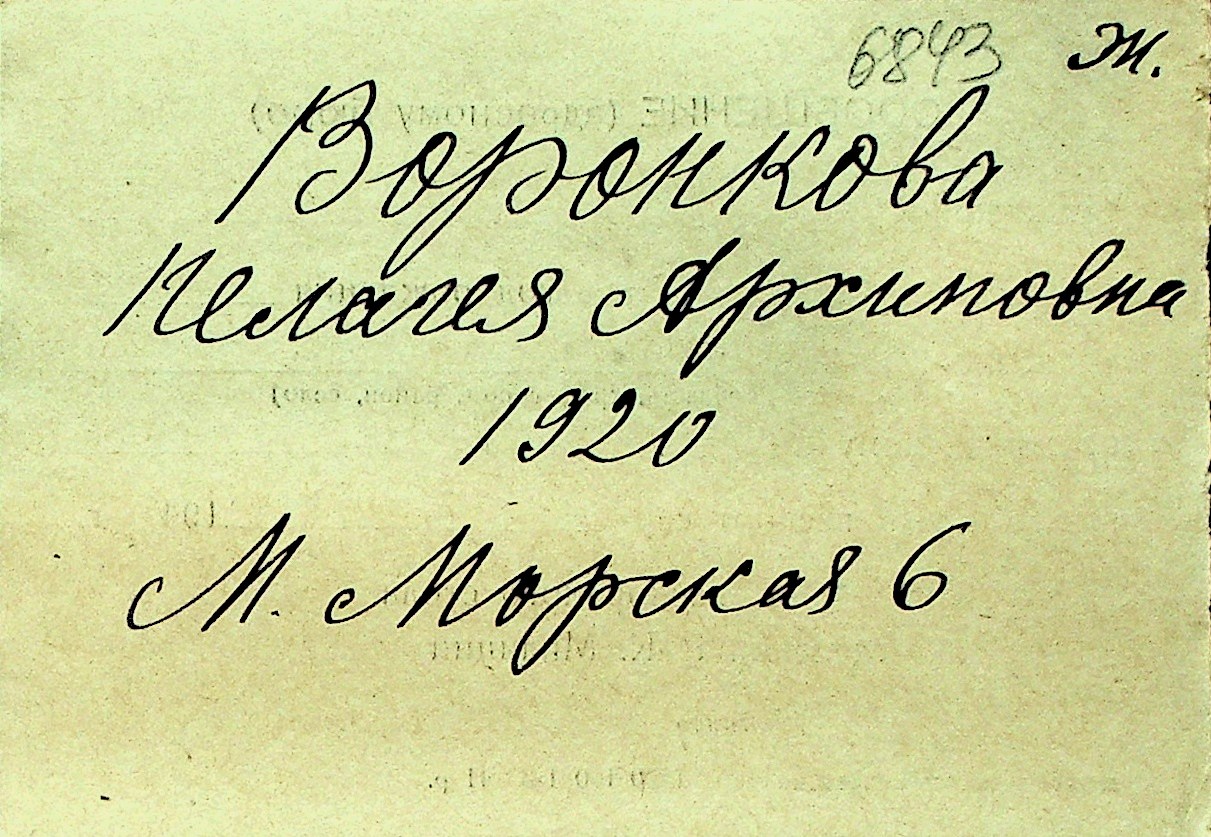 6843 Ж.
Воронкова
Пелагея Архиповна
1920
М. Морская 6